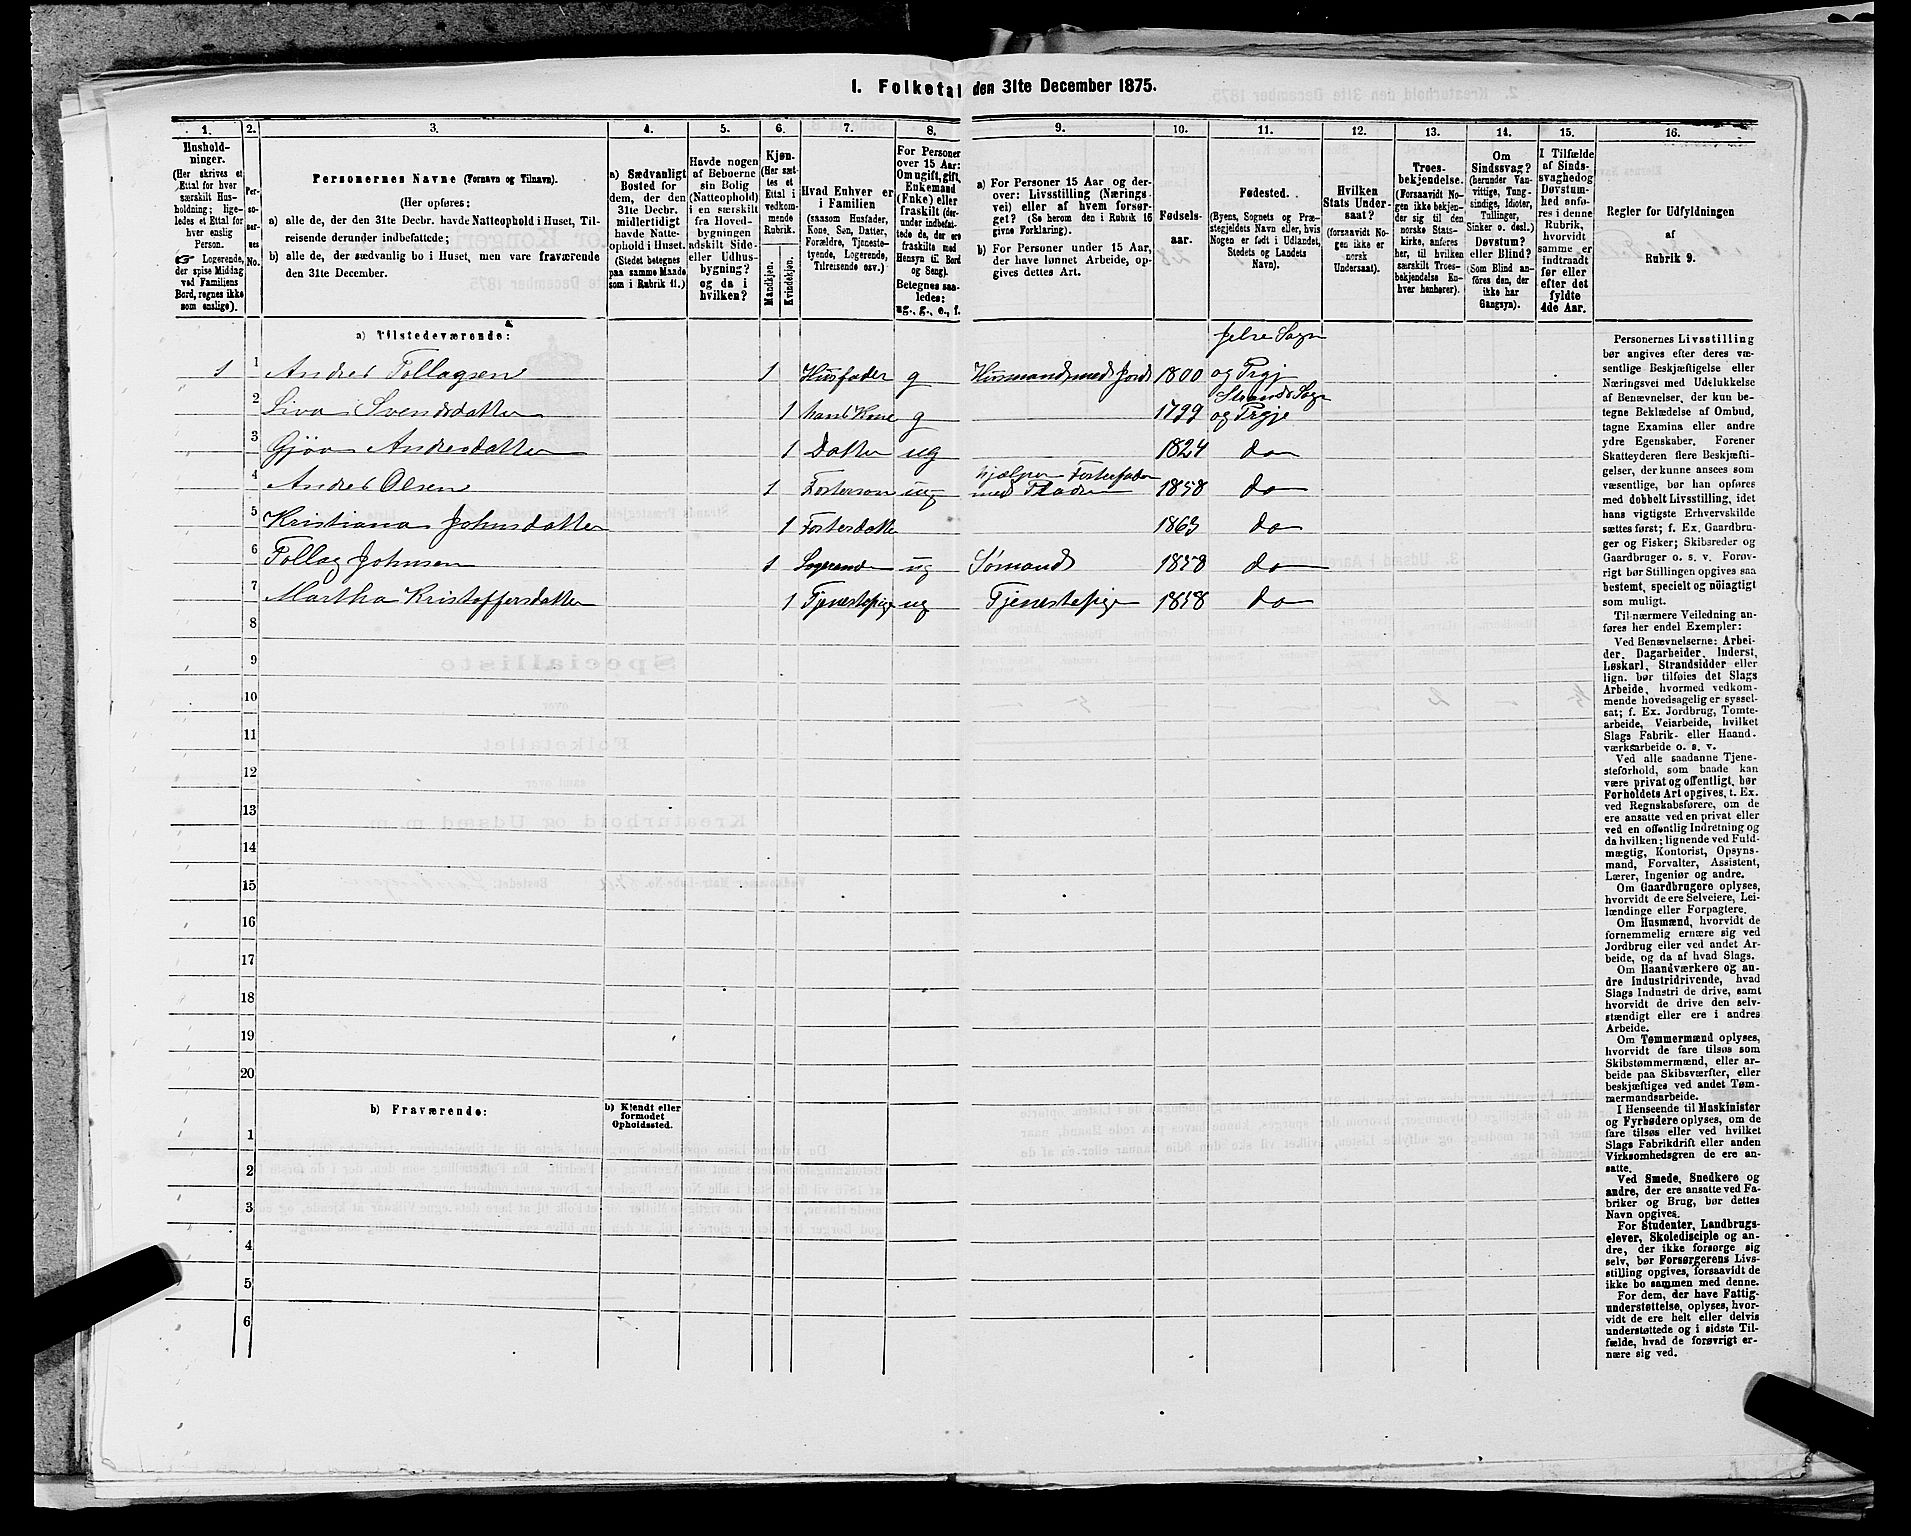 I. Folketal den 31te December 1875.
1. 2. 3. 4. 5. 6. 7. 8. 9. 10. 11. 12. 13. 14. 15. 16.
Hushold-
ninger.
(Her skrives et
Ettal for hver
særskilt Hus-
holdning; lige-
ledes et Ettal for
hver enslig
Person.
☞ Logerende,
der spise Middag
ved Familiens
Bord, regnes ikke
som enslige).
Per-
so-
ner-
nes
No.
Personernes Navne (Fornavn og Tilnavn).
(Her opføres:
a) alle de, der den 31te Decbr. havde Natteophold i Huset, Til-
reisende derunder indbefattede;
b) alle de, der sædvanlig bo i Huset, men vare fraværende
den 31te December.
a) Sædvanligt
Bosted for
dem, der den
31te Decbr.
midlertidigt
havde Natte-
ophold i Huset.
(Stedet betegnes
paa samme Maade
som i Rubrik 11.)
Havde nogen
af Beboerne
sin Bolig
(Natteophold)
i en særskilt
fra Hoved-
bygningen
adskilt Side-
eller Udhus-
bygning?
og da i
hvilken?
Kjøn.
(Her sæt-
tes et
Ettal i
vedkom-
mende
Rubrik.
Mandkjøn.
Kvindekjøn.
Hvad Enhver er
i Familien
(saasom Husfader,
Kone, Søn, Datter,
Forældre, Tjeneste-
tyende, Logerende,
Tilreisende osv.)
For Personer
over 15 Aar:
Om ugift, gift,
Enkemand
(Enke) eller
fraskilt (der-
under indbefat-
tede de, der ere
fraskilte med
Hensyn til Bord
og Seng).
Betegnes saa-
ledes:
ug., g., e., f.
a) For Personer 15 Aar og der-
over: Livsstilling (Nærings-
vei) eller af hvem forsør-
get? (Se herom den i Rubrik 16
givne Forklaring).
b) For Personer under 15 Aar,
der have lønnet Arbeide, op-
gives dettes Art.
Fødsels-
aar.
Fødested.
(Byens, Sognets og Præ-
stegjeldets Navn eller, hvis
Nogen er født i Udlandet,
Stedets og Landets
Navn).
Hvilken
Stats Under-
saat?
(forsaavidt No-
gen ikke er
norsk
Undersaat).
Troes-
bekjendelse.
(Forsaavidt No-
gen ikke bekjen-
der sig til den
norske Stats-
kirke, anføres
her, til hvilken
særskilt Troes-
bekjendelse En-
hver henhører).
Om
Sindssvag?
(herunder Van-
vittige, Tung-
sindige, Idioter,
Tullinger,
Sinker o. desl.)
Døvstum?
eller Blind?
(Som Blind an-
føres den, der
ikke har
Gangsyn).
I Tilfælde
af Sinds-
svaghed og
Døvstum-
hed anfø-
res i denne
Rubrik,
hvorvidt
samme er
indtraadt
før eller
efter det
fyldte
4de Aar.
Regler for Udfyldningen
af
Rubrik 9.
a) Tilstedeværende:
Jelse Sogn
1 1 Andres Tollagsen 1 Husfader g Husmand med Jord 1800 og Prgj
Strands Sogn
2 Siva Svendsdatter 1 hans Kone g 1799 og Prgje
3 Gjøa Andresdatter 1 Datter ug 1824 do
hjælper Fosterfader
4 Andres Olsen 1 Fosterson ug med 1858 do
5 Kristiana Johnsdatter 1 Fosterdatter 1863 do
6 Tollag Johnsen 1 Logerende ug Sømand 1858 do
7 Martha Kristoffersdatter 1 Tjenestepige ug Tjenestepige 1858 do
8
9
10
11
12
13
14
15
16
17
18
19
20
b) Fraværende:
b) Kjendt eller
formodet
Opholdssted.
1
2
3
4
5
6
Personernes Livsstilling
bør angives efter deres væ-
sentlige Beskjæftigelse eller
Næringsvei med Udelukkelse
af Benævnelser, der kun be-
tegne Beklædelse af Ombud,
tagne Examina eller andre
ydre Egenskaber. Forener
Skatteyderen flere Beskjæfti-
gelser, der kunne ansees som
væsentlige, bør han opføres
med dobbelt Livsstilling, idet
hans vigtigste Erhvervskilde
sættes først; f. Ex. Gaardbru-
ger og Fisker; Skibsreder og
Gaardbruger o. s. v. Forøv-
rigt bør Stillingen opgives saa
bestemt, specielt og nöiagtigt
som muligt.
Til nærmere Veiledning an-
føres her endel Exempler:
Ved Benævnelserne: Arbei-
der, Dagarbeider, Inderst,
Løskarl, Strandsidder eller
lign. bør tilføies det Slags
Arbeide, hvormed vedkom-
mende hovedsagelig er syssel-
sat; f. Ex. Jordbrug, Tomte-
arbeide, Veiarbeide, hvilket
Slags Fabrik- eller Haand-
værksarbeide o. s. v.
Ved alle saadanne Tjene-
steforhold, som baade kan
være privat og offentligt, bør
Forholdets Art opgives, t. Ex.
ved Regnskabsførere, om de
ere ansatte ved en privat eller
ved en offentlig Indretning og
da hvilken; lignende ved Fuld-
mægtig, Kontorist, Opsyns-
mand, Forvalter, Assistent,
Lærer, Ingeniør og andre.
Om Gaardbrugere oplyses,
hvorvidt de ere Selveiere, Lei-
lændinge eller Forpagtere.
Om Husmænd, hvorvidt de
fornemmelig ernære sig ved
Jordbrug eller ved andet Ar-
beide, og da af hvad Slags.
Om Haandværkere og an-
dre Industridrivende, hvad
Slags Industri de drive, samt
hvorvidt de drive den selv-
stændigt eller ere i andres
Arbeide.
Om Tømmermænd oplyses,
hvorvidt de fare tilsøs som
Skibstømmermænd, eller ar-
beide paa Skibsværfter, eller
beskjæftiges ved andet Tøm-
mermandsarbeide.
I Henseende til Maskinister
og Fyrbødere oplyses, om de
fare tilsøs eller ved hvilket
Slags Fabrikdrift eller anden
Virksomhedsgren de ere an-
satte.
Ved Smede, Snedkere og
andre, der ere ansatte ved Fa-
briker og Brug, bør dettes
Navn opgives.
For Studenter, Landbrugs-
elever, Skoledisciple og an-
dre, der ikke forsørge sig
selv, bør Forsørgerens Livs-
stilling opgives, forsaavidt de
ikke bo sammen med denne.
For dem, der have Fattig-
understøttelse, oplyses, hvor-
vidt de ere helt eller delvis
understøttede og i sidste Til-
fælde, hvad de forøvrigt er-
nære sig ved.